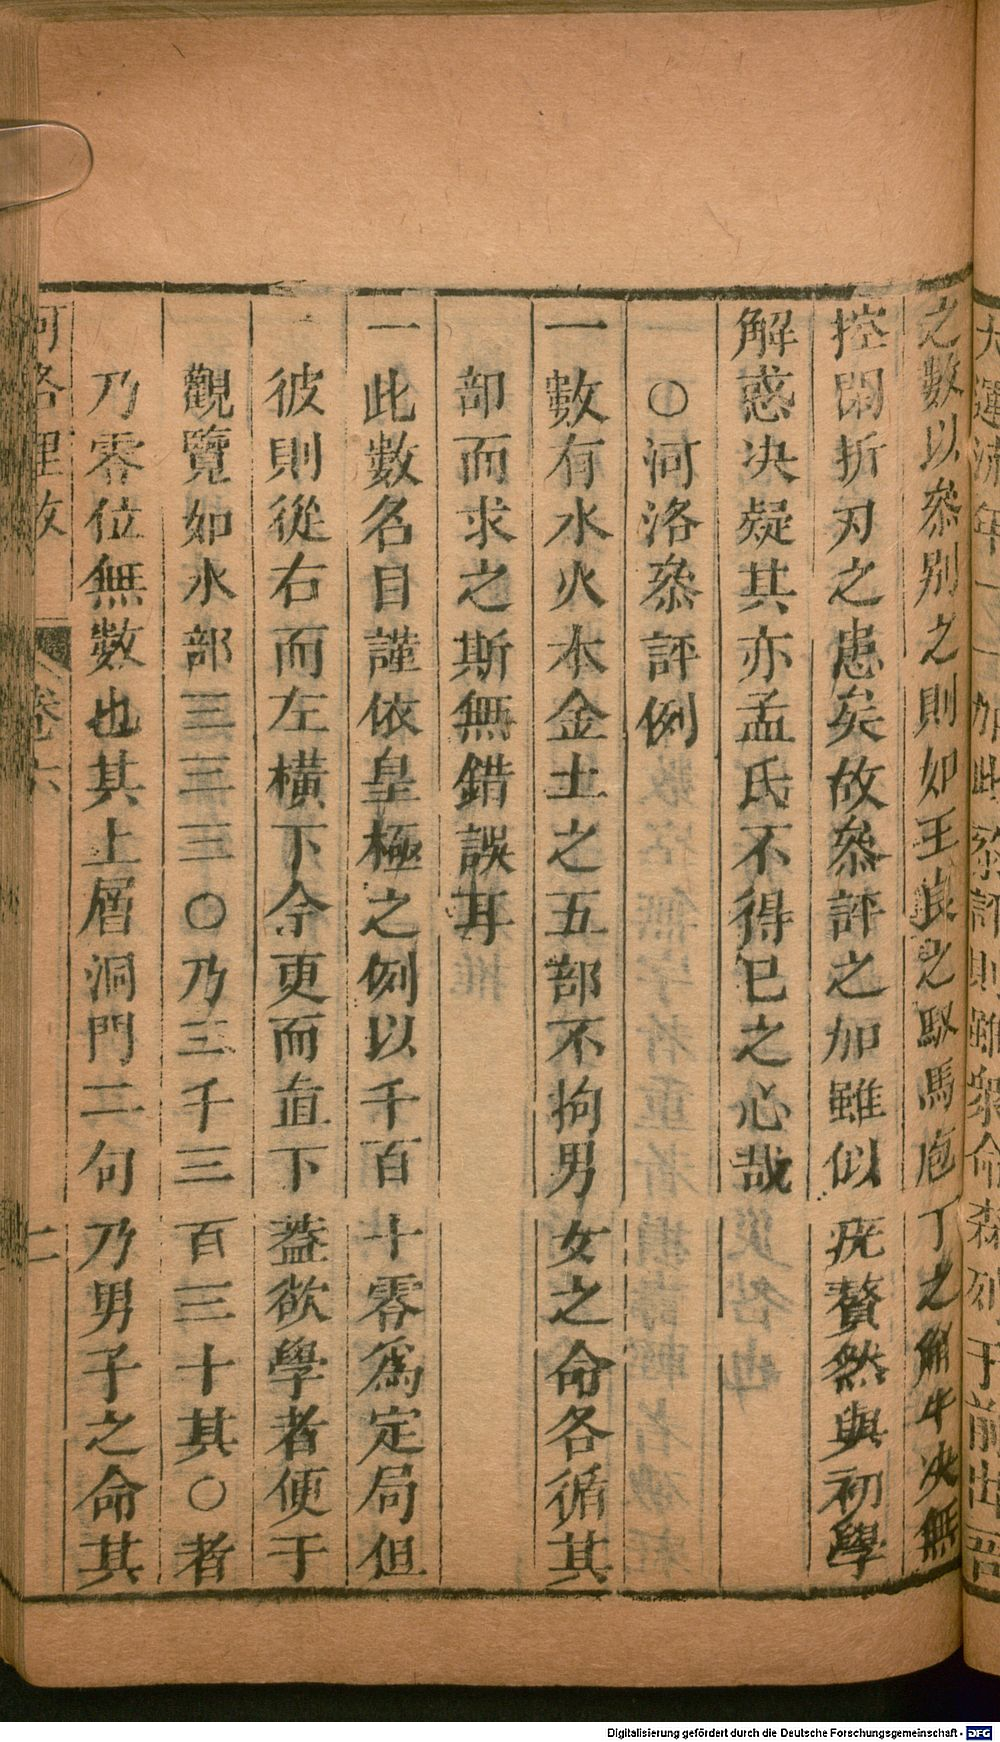 之數以叅别之則如王良之馭馬庖丁之解牛决無
控閑折刃之患矣故叅評之加雖似疣贅然與初學
解惑决疑其亦孟氏不得已之心哉
○河洛叅評例
一數有水火木金土之五部不拘男女之命各循其
部而求之斯無錯誤耳
一此數名目謹依皇極之例以千百十零爲定局但
彼則從右而左橫下余更而直下葢欲學者便于
觀覽如水部三三三○乃三千三百三十其○者
乃零位無數也其上層洞門二句乃男子之命其
河洛理数
卷六
二
Digitalisierung gefördert durch die Deutsche Forschungsgemeinschaft - DFG